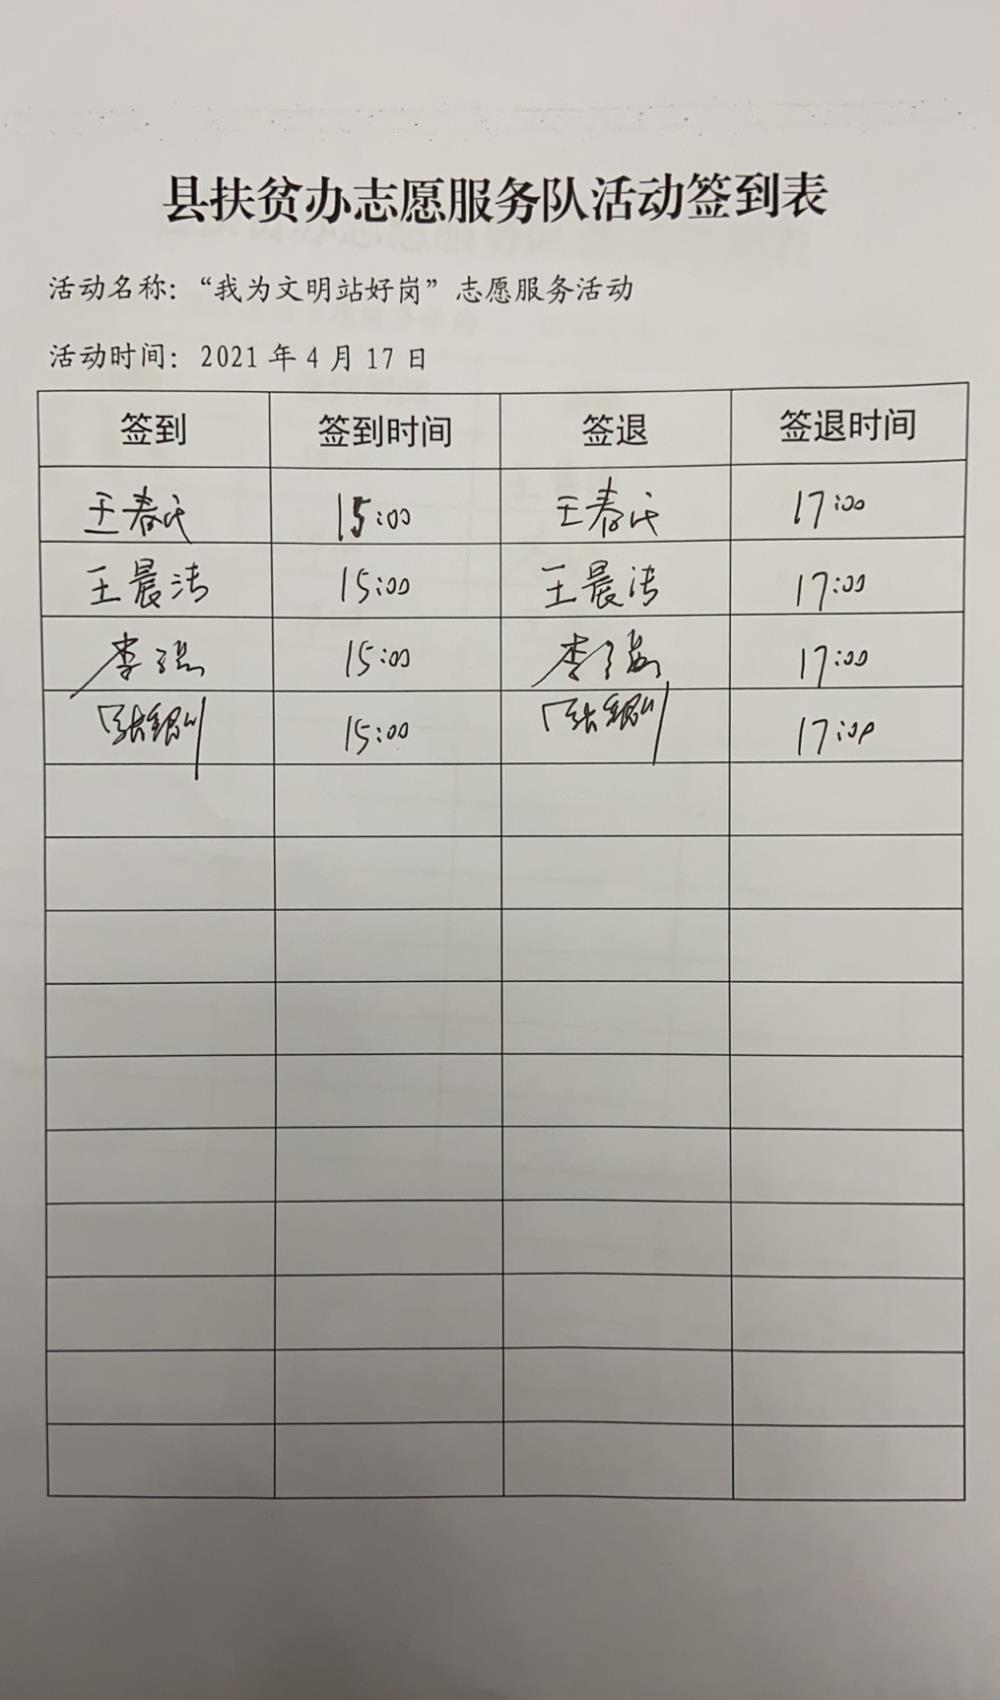 县扶贫办志愿服务队活动签到表
活动名称：“我为文明站好岗”志愿服务活动
活动时间：2021 年 4 月 17 日
签到 签到时间 签退 签退时间
王春 15:00 王春 17:00
王晨洁 15:00 王晨洁 17:00
李 15:00 李 17:00
15:00 17:00